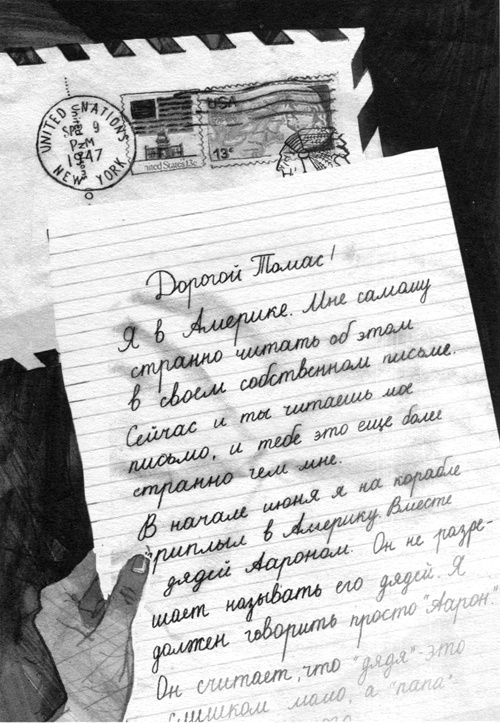 UNITED NATIONS
SEP 9
PM
1947
NEW YORK
USA
United States 13c
13c
Дорогой Томас!
Я в Америке. Мне самому
странно читать об этом
в своем собственном письме.
Сейчас и ты читаешь мое
письмо, и тебе это еще более
странно чем мне.
В начале июня я на корабле
приплыл в Америку. Вместе
дядей Аароном. Он не разре-
шает называть его дядей. Я
должен говорить просто "Аарон."
Он считает, что "дядя" - это
слишком мало, а "папа"